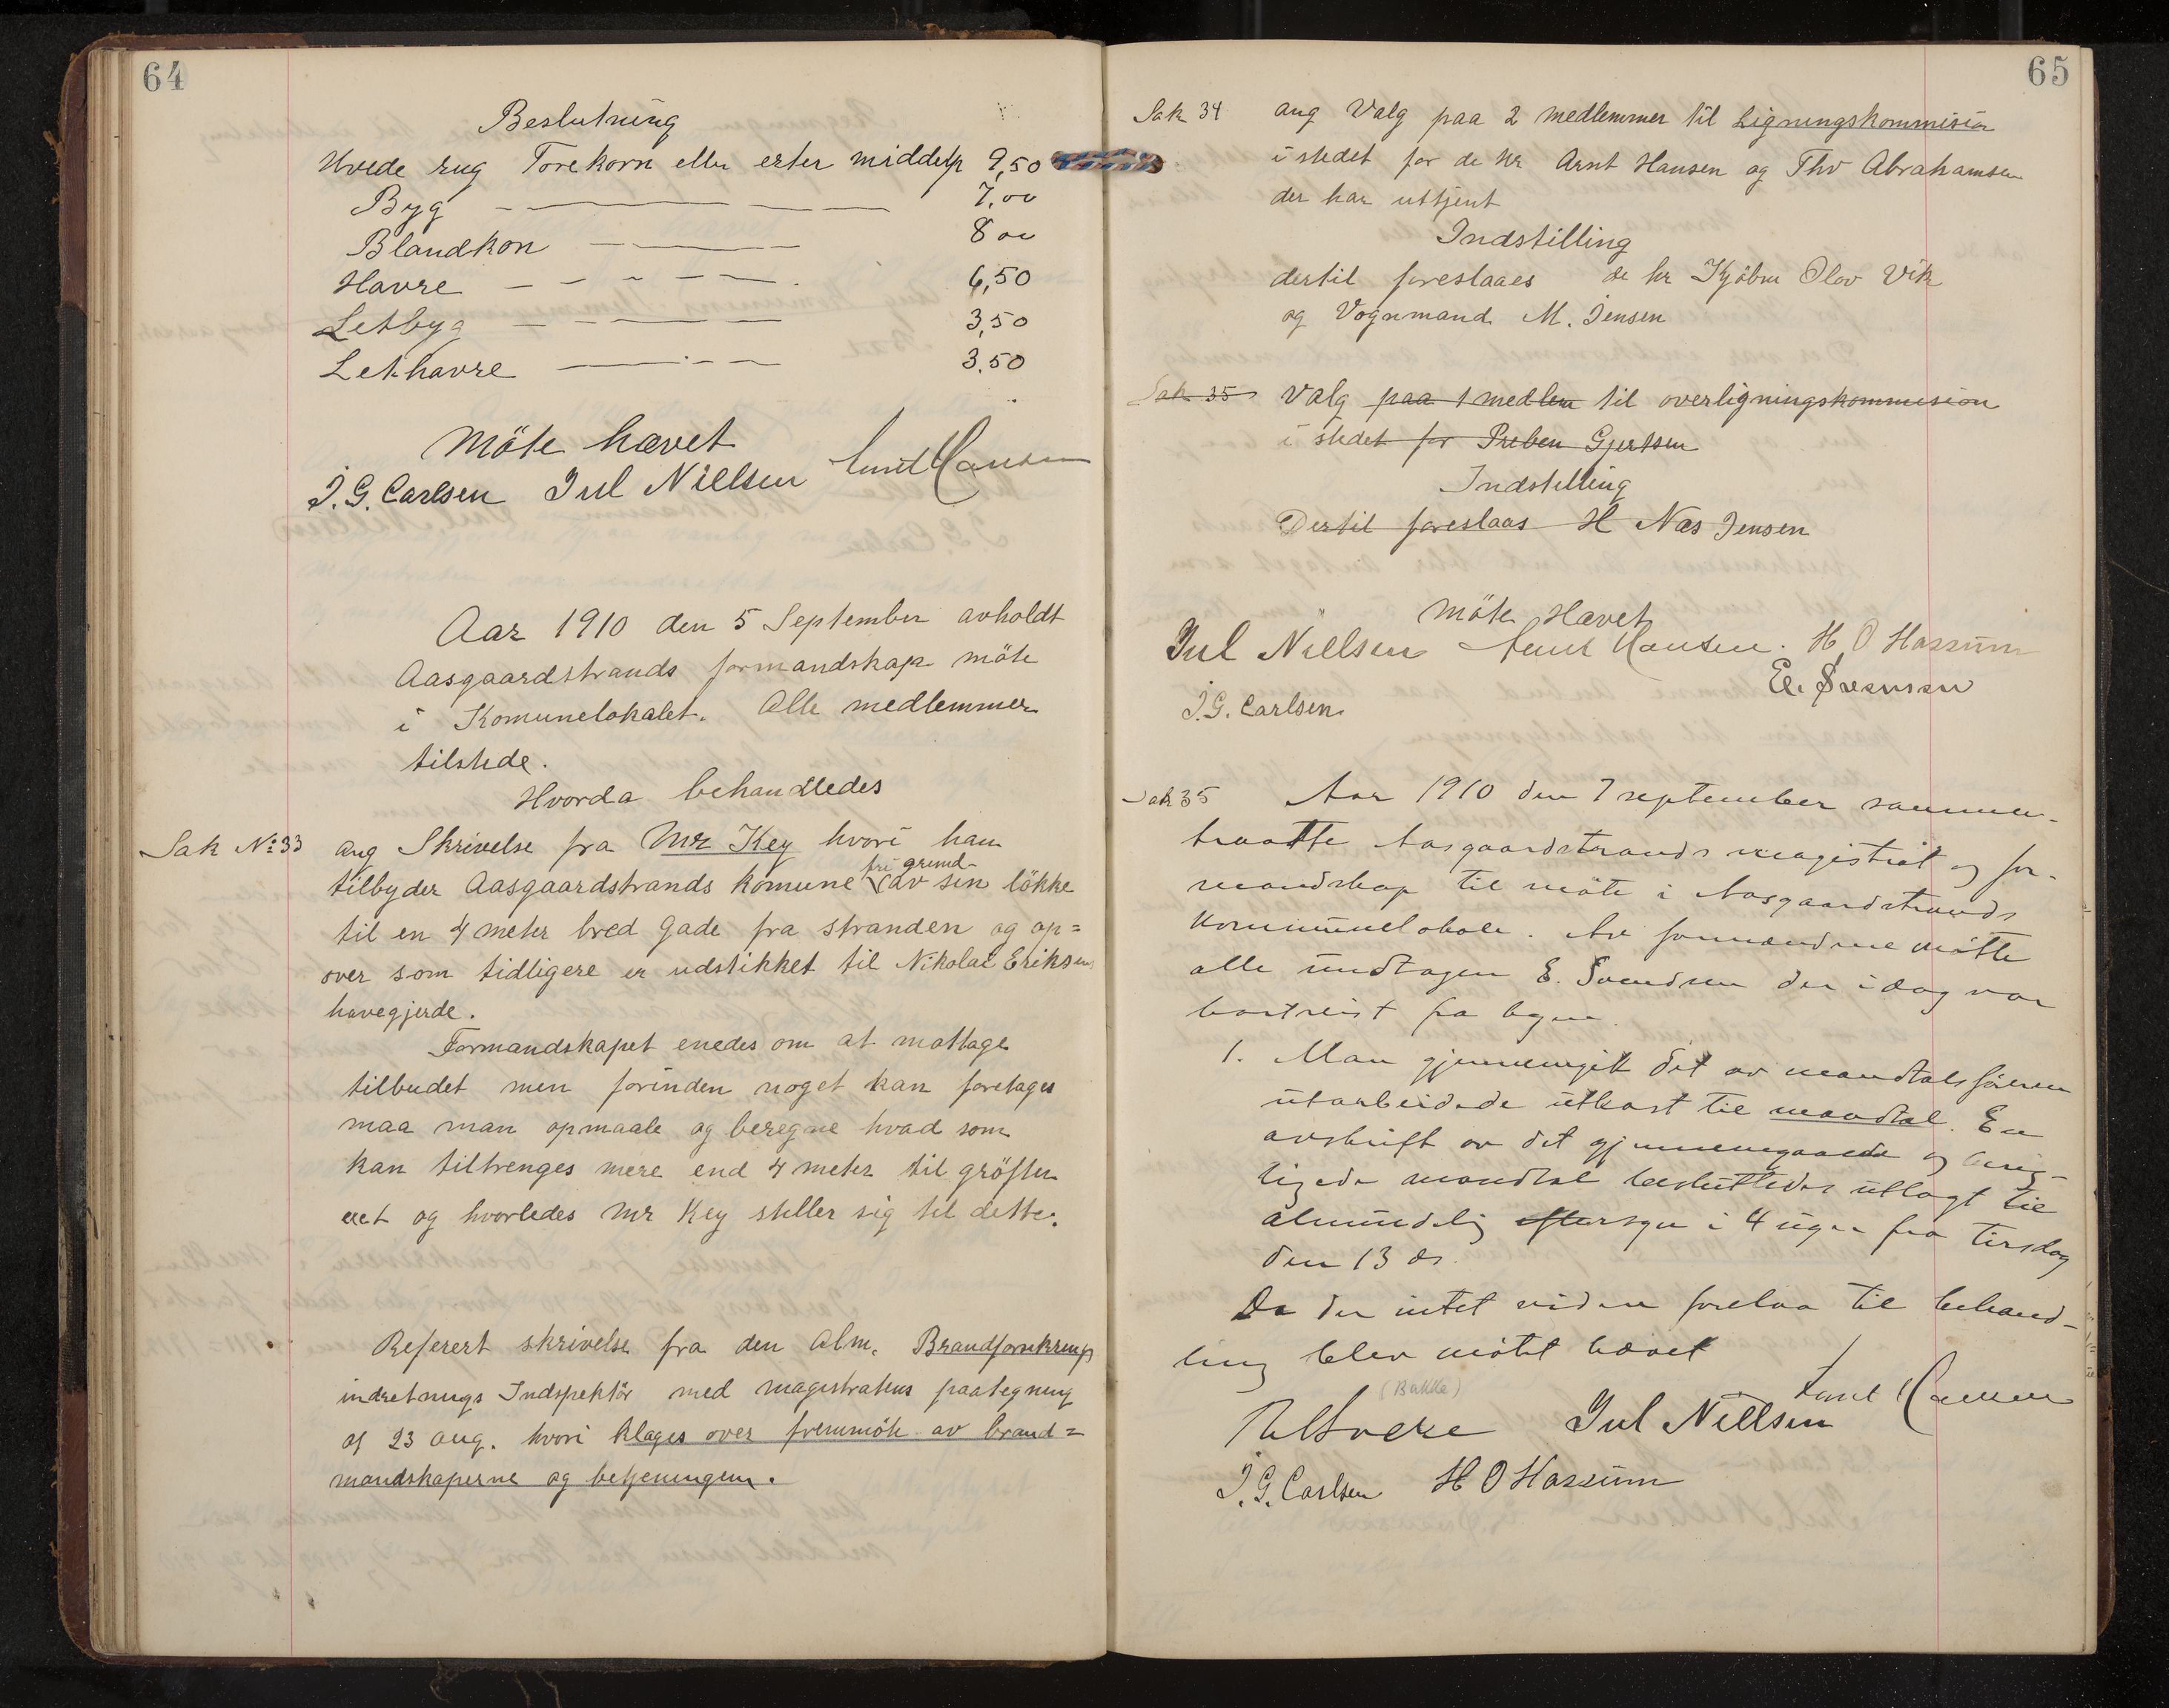 64
Beslutning
Hvede rug Torekorn eller erter middelp 9,50
Byg 7,00
Blandkon 8 00
Havre 6,50
Letbyg 3,50
Lethavre 3.50
Möte hævet
J.G. Carlsen Jul Nielsen Hansen
Aar 1910 den 5 September avholdt
Aasgaardstrands formandskap möte
i Komunelokalet. Alle medlemmer
tilstede.
Hvorda behandledes
Sak No 33 ang Skrivelse fra Mr Key hvori han
tilbyder Aasgaardstrands komune fri grund av sin lökke
til en 4 meter bred Gade fra stranden og op=
over som tidligere er udstikket til Nikolai Eriksens
havegjerde.
Formandskapet enedes om at mottage
tilbudet men forinden noget kan foretages
maa man opmaale og beregne hvad som
kan tiltrenges mere end 4 meter til gröfter
ect og hvorledes Mr Key stiller sig til dette.
Referert skrivelse fra den Alm. Brandforsikrings
indretnings Indspektör med magistratens paategning
af 23 aug. hvori klages over fremmöte av brand=
mandskaperne og betjeningen.
65
Sak 34 ang Valg paa 2 medlemmer til Ligningskommision
i stedet for de hr Arnt Hansen og Thv Abrahamsen
der har uttjent
Indstilling
dertil foreslaaes de hr Kjöbm Olav Vik
og Vognmand M. Jensen
Sak 35 Valg paa 1 medlem til overligningskommision
i stedet for Preben Gjertsen
Indstilling
Dertil foreslaas H Næs Jensen
Möte Hævet
Jul Nielsen Hansen. H O Hassum
J.G. Carlsen E. Svensen
Sak 35 Aar 1910 den 7 september sammen-
traatte Aasgaardstrands magistrat og for-
mandskap til möte i Aasgaardstrands
kommunelokale. Av formændene mötte
alle undtagen E. Svendsen der idag var
bortreist fra byen.
1. Man gjennemgik det av mandtalsföreren
utarbeidede utkast til mandtal. En
avskrift av det gjennemgaaede og berig-
tigede mandtal besluttedes utlagt til
almindelig eftersyn i 4 uger fra tirsdag
den 13 ds.
Da der intet videre forelaa til behand-
ling blev mötet hævet
(Bakke)
Jul Nielsen Hansen
J.G. Carlsen H O Hassum